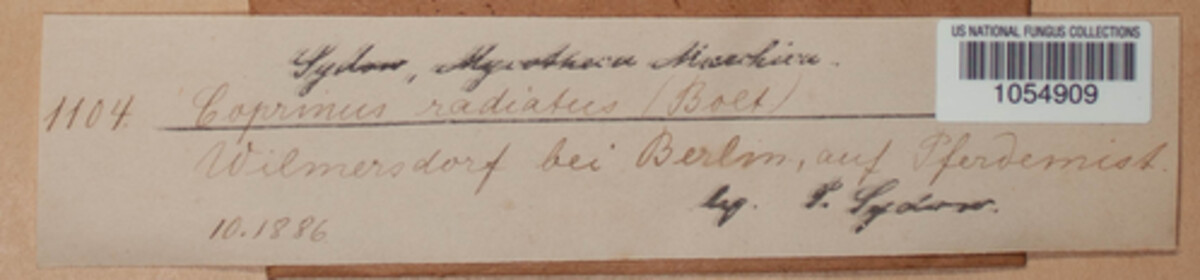 US NATIONAL FUNGUS COLLECTIONS
1054909
Sydow, Mycotheca Marchica.
1104. Coprinus radiatus (Bolt)
Wilmersdorf bei Berlin, auf Pferdemist.
lg. P. Sydow.
10.1886